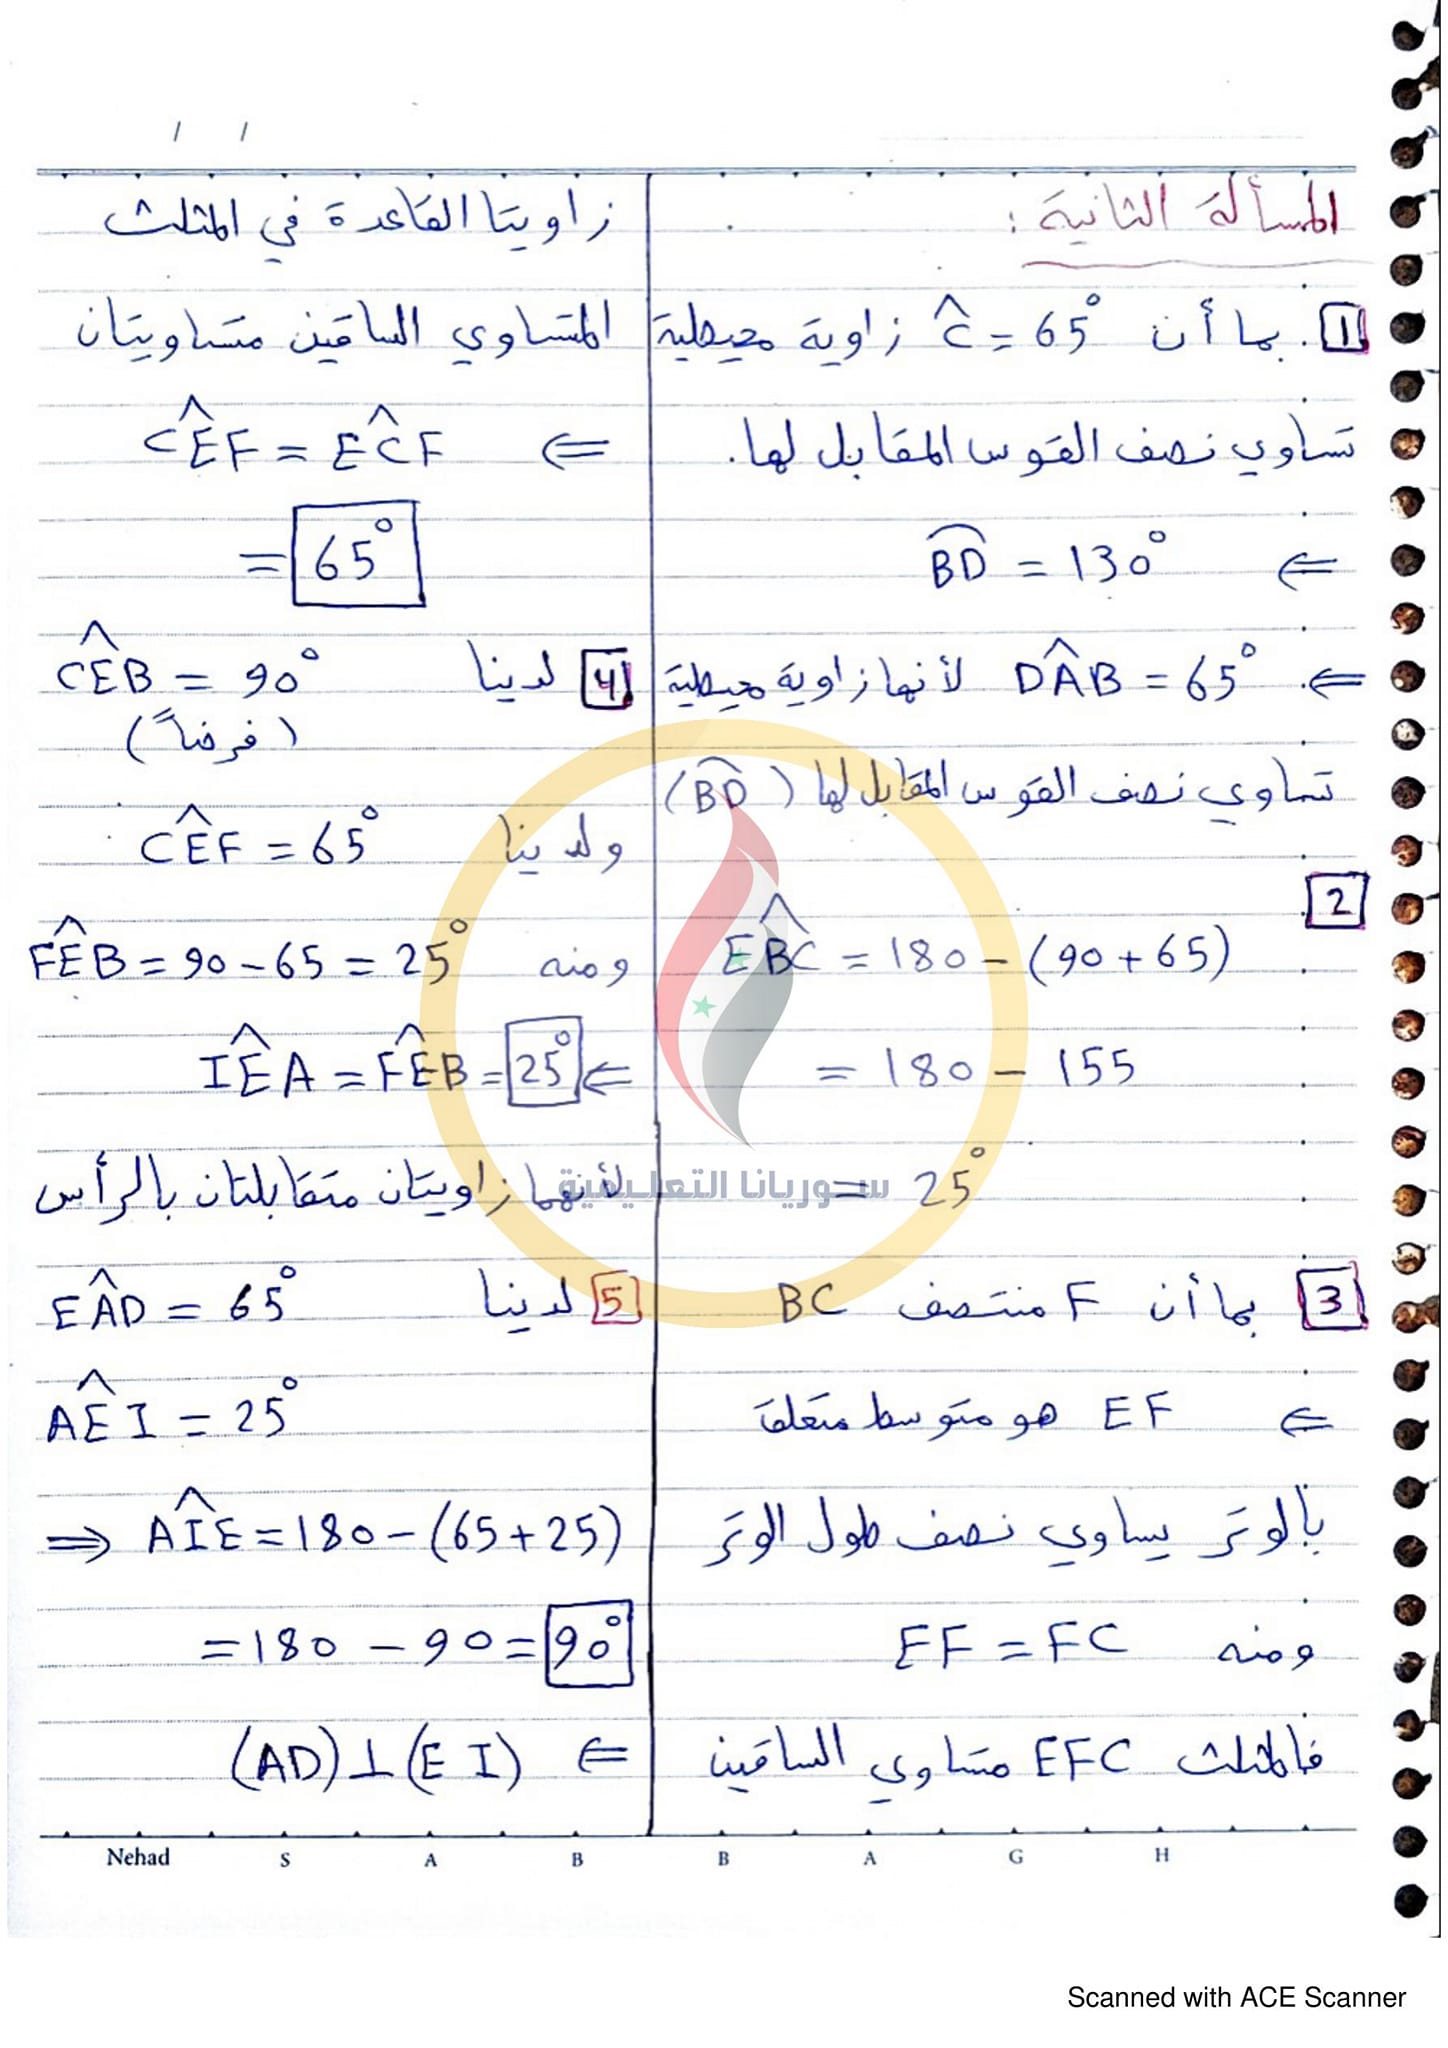 المسألة الثانية :
1 . بما أن Ĉ = 65° زاوية محيطية
تساوي نصف القوس المقابل لها.
⇐ B͡D = 130°
⇐ DÂB = 65° لأنها زاوية محيطية
تساوي نصف القوس المقابل لها (B͡D)
2
EB̂C = 180 - (90 + 65)
= 180 - 155
= 25°
3 بما أن F منتصف BC
⇐ EF هو متوسط متعلق
بالوتر يساوي نصف طول الوتر
ومنه EF = FC
فالمثلث EFC متساوي الساقين
زاويتا القاعدة في المثلث
المتساوي الساقين متساويتان
⇐ CÊF = EĈF
= 65°
4 لدينا CÊB = 90°
(فرضاً)
ولدينا CÊF = 65°
ومنه FÊB = 90 - 65 = 25°
⇐ IÊA = FÊB = 25°
لأنهما زاويتان متقابلتان بالرأس
5 لدينا EÂD = 65°
AÊI = 25°
⇒ AÎE = 180 - (65 + 25)
= 180 - 90 = 90°
⇐ (AD) ⊥ (EI)
سوريانا التعليمية
Nehad S A B B A G H
Scanned with ACE Scanner